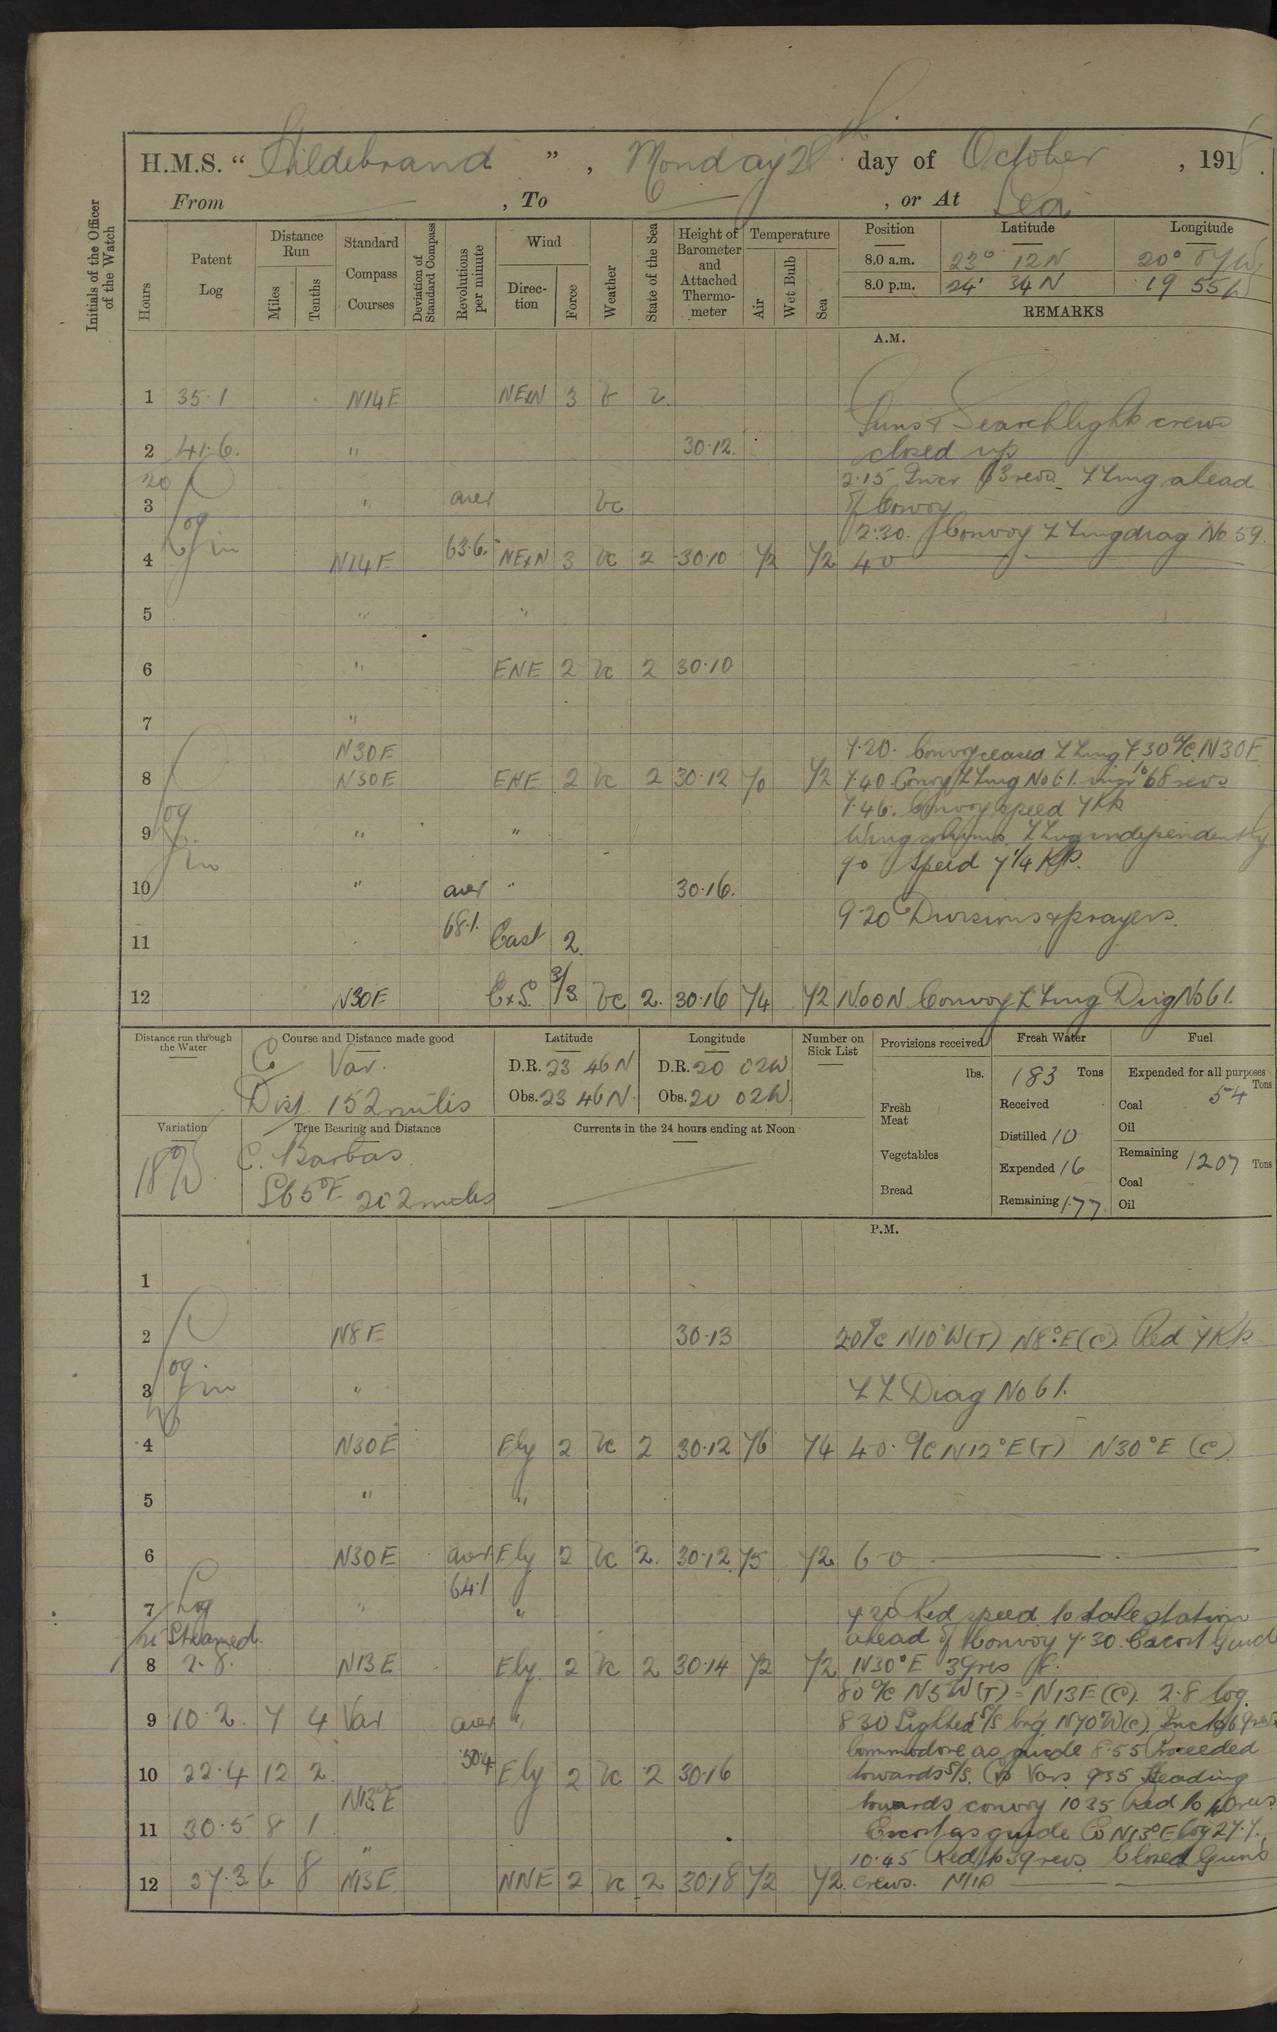 H.M.S. “ Hildebrand ” , Monday 28th day of October , 1918.
From , To , or At Sea
Initials of the Officer of the Watch
Hours Patent Log Distance Run Miles Tenths Standard Compass Courses Deviation of Standard Compass Revolutions per minute Wind Direction Force Weather State of the Sea Height of Barometer and Attached Thermometer Temperature Air Wet Bulb Sea
Position Latitude Longitude
8.0 a.m. 23° 12N 20° 07W
8.0 p.m. 24° 34N 19 55W
REMARKS
A.M.
1 35·1 N14E NExN 3 b 2
Guns & Searchlight crews
2 41·6. " 30·12. closed up
2·15 Incr 63 revs. ZZing ahead
3 " aver bc of Convoy
Log in 63·6. 2·30. Convoy ZZing diag No 59.
4 N14E NExN 3 bc 2 30·10 72 72 4·0
5 " "
6 " ENE 2 bc 2 30·10
7 "
N30E 7·20. Convoy ceased ZZing 7·30 a/c N30E
8 N30E ENE 2 bc 2 30·12 70 72 7·40 Convoy ZZing No 61. incr to 68 revs
7·46. Convoy speed 7 Kts
Log in
9 " " Wing columns ZZing independently
9·0 Speed 7 1/4 Kts.
10 " aver " 30·16.
68·1. 9·20 Divisions & prayers.
11 East 2.
12 N30E ExS. 3/3 bc 2. 30·16 74 72 NOON Convoy ZZing Diag No 61.
Distance run through the Water
Course and Distance made good
Co Var.
Dist 152 miles
Latitude
D.R. 23 46N
Obs. 23 46N.
Longitude
D.R. 20 02W
Obs. 20 02W.
Number on Sick List
Provisions received
lbs.
Fresh Meat
Vegetables
Bread
Fresh Water
183 Tons
Received
Distilled 10
Expended 16
Remaining 177
Fuel
Expended for all purposes
54 Tons
Coal
Oil
Remaining 1207 Tons
Coal
Oil
Variation
18°W
True Bearing and Distance
C. Barbas
S65°E 202 miles
Currents in the 24 hours ending at Noon
P.M.
1
2 N8E 30·13 2·0 a/c N10°W(T) N8°E(C). Red 7 Kts
Log in
3 " ZZ Diag No 61.
4 N30E Ely 2 bc 2 30·12 76 74 4·0. a/c N12°E(T) N30°E (C).
5 " "
6 N30E aver Ely 2 bc 2. 30·12 75 72 6·0
64·1
7 Log " " 7·20 Red speed to take station
Streamed. ahead of Convoy 7·30. Escort Guide
8 2·8. N13E Ely. 2 bc 2 30·14 72 72 N30°E 39 revs
8·0 a/c N5W(T) = N13E(C). 2·8 log.
9 10·2. 7 4 Var aver " 8·30 Sighted S/S brg N70°W(C). Inc to 69 revs
50·4 Commodore as guide 8·55 Proceeded
10 22·4 12 2 Ely 2 bc 2 30·16 towards S/S. Co Vars. 9·35 Heading
N13°E towards convoy 10·35 Red to 40 revs
11 30·5 8 1 Escort as guide Co N13°E log 27·7.
" 10·45 Red to 39 revs. Closed Guns
12 37·3 6 8 N13E NNE 2 bc 2 30·18 72 72. crews. Mid